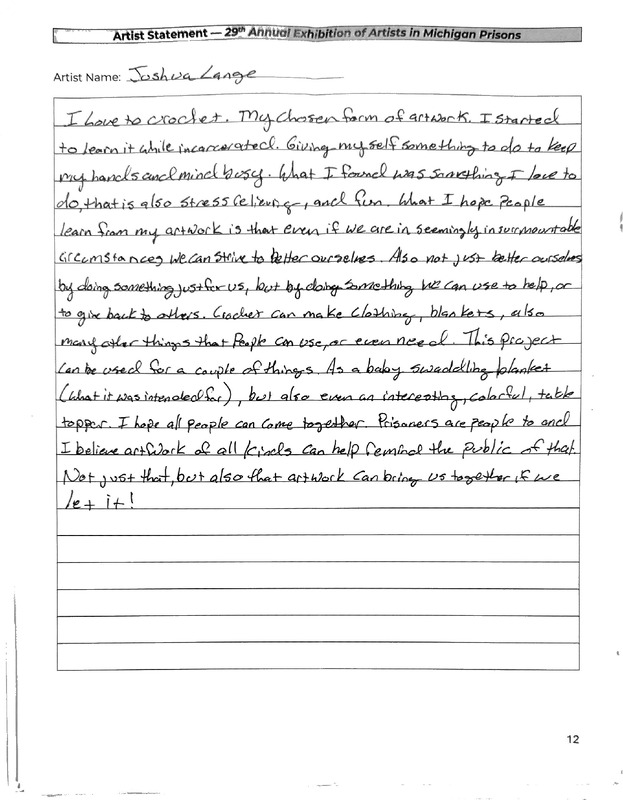 Artist Statement — 29th Annual Exhibition of Artists in Michigan Prisons
Artist Name: Joshua Lange
I Love to crochet. My chosen form of artwork. I started
to learn it while incarcerated. Giving my self something to do to keep
my hands and mind busy. What I found was something I love to
do, that is also stress relieving, and fun. What I hope People
learn from my artwork is that even if we are in seemingly insurmountable
circumstances we can strive to better ourselves. Also not just better ourselves
by doing something just for us, but by doing something we can use to help, or
to give back to others. Crochet can make clothing, blankets, also
many other things that People can use, or even need. This Project
can be used for a couple of things. As a baby swaddling blanket
(what it was intended for), but also even an interesting, colorful, table
topper. I hope all people can come together. Prisoners are people to and
I believe artwork of all kinds can help remind the public of that.
Not just that, but also that artwork can bring us together if we
let it!
12